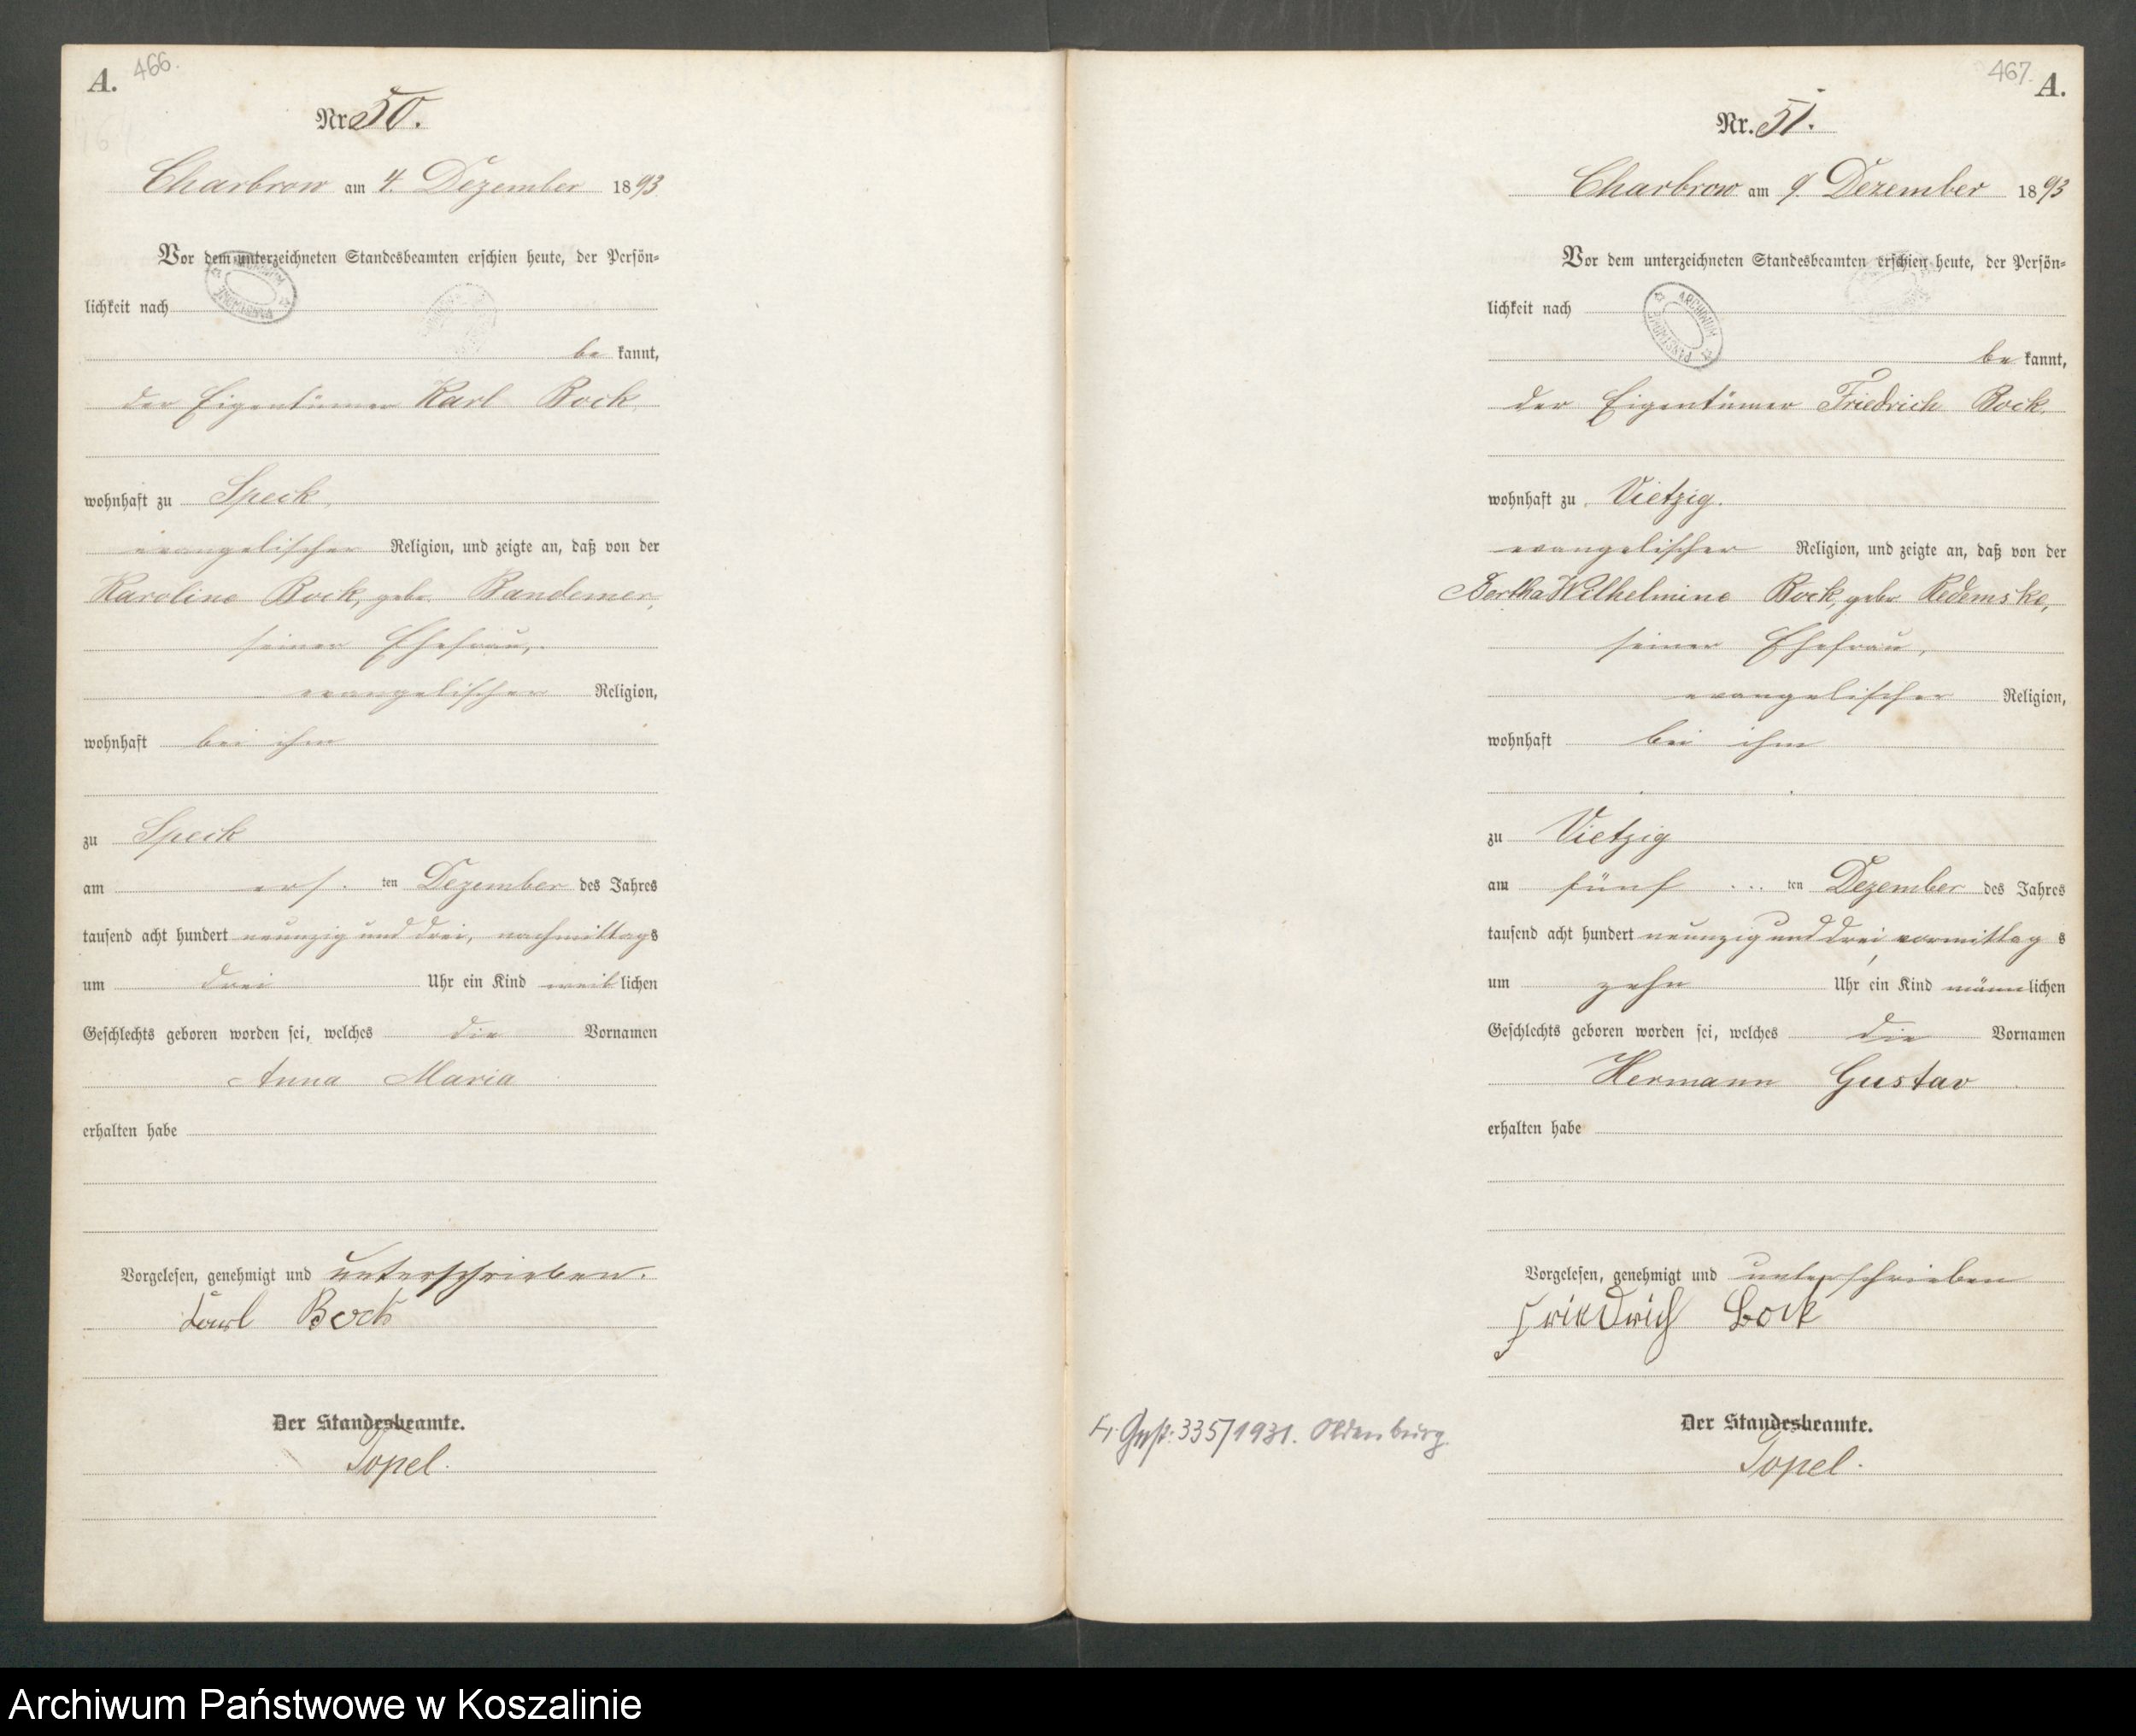 A. 466.
Nr. 50.
Charbrow am 4. Dezember 1893
Vor dem unterzeichneten Standesbeamten erschien heute, der Persön-
lichkeit nach
be kannt,
der Eigentümer Karl Bock,
wohnhaft zu Speck,
evangelischer Religion, und zeigte an, daß von der
Karoline Bock, geb. Bandemer,
seiner Ehefrau,
evangelischer Religion,
wohnhaft bei ihm
zu Speck
am ers ten Dezember des Jahres
tausend acht hundert neunzig und drei, nachmittags
um drei Uhr ein Kind weiblichen
Geschlechts geboren worden sei, welches die Vornamen
Anna Maria
erhalten habe
Vorgelesen, genehmigt und unterschrieben.
Karl Bock
Der Standesbeamte.
Topel.
467. A.
Nr. 51.
Charbrow am 9. Dezember 1893
Vor dem unterzeichneten Standesbeamten erschien heute, der Persön-
lichkeit nach
ARCHIWUM PAŃSTWOWE
be kannt,
der Eigentümer Friedrich Bock,
wohnhaft zu Vietzig.
evangelischer Religion, und zeigte an, daß von der
Bertha Wilhelmine Bock, geb. Redemske,
seiner Ehefrau,
evangelischer Religion,
wohnhaft bei ihm
zu Vietzig
am fünf ten Dezember des Jahres
tausend acht hundert neunzig und drei, vormittag s
um zehn Uhr ein Kind männlichen
Geschlechts geboren worden sei, welches die Vornamen
Hermann Gustav
erhalten habe
Vorgelesen, genehmigt und unterschrieben
Friedrich Bock
Der Standesbeamte.
Topel.
335/1931. Oldenburg.
Archiwum Państwowe w Koszalinie